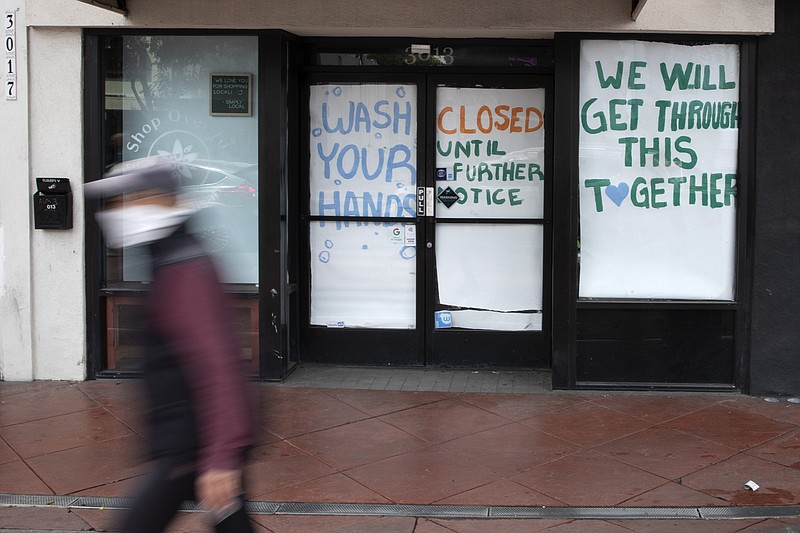 3017
3013
WE LOVE YOU
FOR SHOPPING
LOCAL!
SIMPLY
LOCAL
Shop
WASH
YOUR
HANDS
CLOSED
UNTIL
FURTHER
NOTICE
WE WILL
GET THROUGH
THIS
T♥GETHER
PULL
G